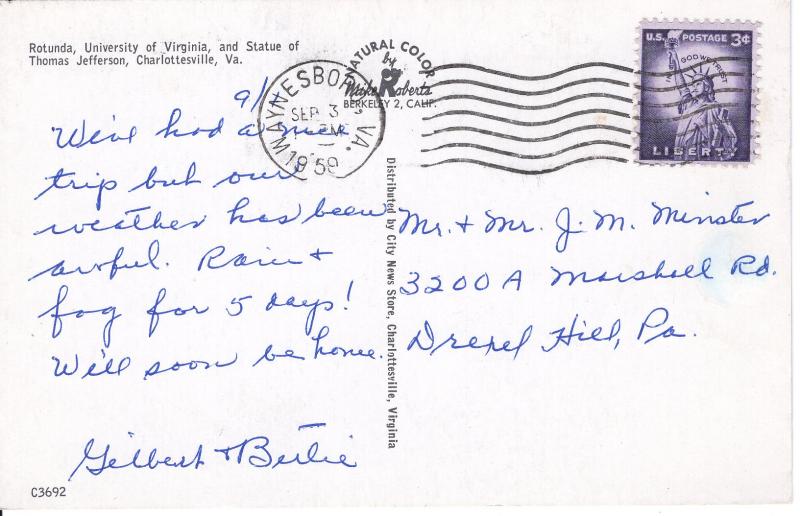 Rotunda, University of Virginia, and Statue of
Thomas Jefferson, Charlottesville, Va.
9/1
We've had a nice
trip but our
weather has been
awful. Rain +
fog for 5 days!
Will soon be home.
Gilbert + Bertie
C3692
WAYNESBORO, VA.
SEP 3
M
1959
NATURAL COLOR
by
Mike Roberts
BERKELEY 2, CALIF.
Distributed by City News Store, Charlottesville, Virginia
U.S. POSTAGE 3¢
IN GOD WE TRUST
LIBERTY
Mr. + Mr. J. M. Minster
3200 A Marshall Rd.
Drexel Hill, Pa.